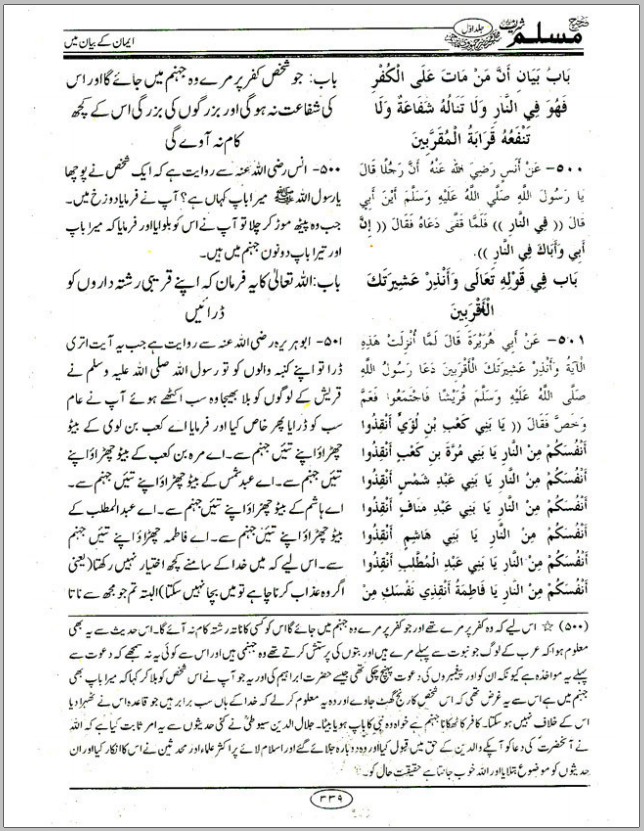 ایمان کے بیان میں
جلد اوّل
مسلم
باب: جو شخص کفر پر مرے وہ جہنم میں جائے گا اور اس
کی شفاعت نہ ہوگی اور بزرگوں کی بزرگی اس کے کچھ
کام نہ آوے گی
۵۰۰- انس رضی اللہ عنہ سے روایت ہے کہ ایک شخص نے پوچھا
یا رسول اللہ ﷺ میرا باپ کہاں ہے؟ آپ نے فرمایا دوزخ میں۔
جب وہ پیٹھ موڑ کر چلا تو آپ نے اس کو بلوایا اور فرمایا کہ میرا باپ
اور تیرا باپ دونوں جہنم میں ہیں۔
باب: اللہ تعالیٰ کا یہ فرمان کہ اپنے قریبی رشتہ داروں کو
ڈرائیں
۵۰۱- ابو ہریرہ رضی اللہ عنہ سے روایت ہے جب یہ آیت اتری
ڈرا تو اپنے کنبہ والوں کو تو رسول اللہ صلی اللہ علیہ وسلم نے
قریش کے لوگوں کو بلا بھیجا وہ سب اکٹھے ہوئے آپ نے عام
سب کو ڈرایا پھر خاص کیا اور فرمایا اے کعب بن لوی کے بیٹو
چھڑاؤ اپنے تئیں جہنم سے۔ اے مرہ بن کعب کے بیٹو چھڑاؤ اپنے
تئیں جہنم سے۔ اے عبد شمس کے بیٹو چھڑاؤ اپنے تئیں جہنم سے۔
اے ہاشم کے بیٹو چھڑاؤ اپنے تئیں جہنم سے۔ اے عبدالمطلب کے
بیٹو چھڑاؤ اپنے تئیں جہنم سے۔ اے فاطمہ چھڑاؤ اپنے تئیں جہنم
سے۔ اس لیے کہ میں خدا کے سامنے کچھ اختیار نہیں رکھتا (یعنی
اگر وہ عذاب کرنا چاہے تو میں بچا نہیں سکتا) البتہ تم جو مجھ سے ناتا
بَابُ بَيَانِ أَنَّ مَنْ مَاتَ عَلَى الْكُفْرِ
فَهُوَ فِي النَّارِ وَلَا تَنَالُهُ شَفَاعَةٌ وَلَا
تَنْفَعُهُ قَرَابَةُ الْمُقَرَّبِينَ
٥٠٠- عَنْ أَنَسٍ رَضِيَ اللهُ عَنْهُ أَنَّ رَجُلًا قَالَ
يَا رَسُولَ اللَّهِ صَلَّى اللَّهُ عَلَيْهِ وَسَلَّمَ أَيْنَ أَبِي
قَالَ (( فِي النَّارِ )) فَلَمَّا قَفَّى دَعَاهُ فَقَالَ (( إِنَّ
أَبِي وَأَبَاكَ فِي النَّارِ )).
بَاب فِي قَوْلِهِ تَعَالَى وَأَنْذِرْ عَشِيرَتَكَ
الْأَقْرَبِينَ
٥٠١- عَنْ أَبِي هُرَيْرَةَ قَالَ لَمَّا أُنْزِلَتْ هَذِهِ
الْآيَةُ وَأَنْذِرْ عَشِيرَتَكَ الْأَقْرَبِينَ دَعَا رَسُولُ اللَّهِ
صَلَّى اللَّهُ عَلَيْهِ وَسَلَّمَ قُرَيْشًا فَاجْتَمَعُوا فَعَمَّ
وَخَصَّ فَقَالَ (( يَا بَنِي كَعْبِ بْنِ لُؤَيٍّ أَنْقِذُوا
أَنْفُسَكُمْ مِنْ النَّارِ يَا بَنِي مُرَّةَ بنِ كَعْبٍ أَنْقِذُوا
أَنْفُسَكُمْ مِنْ النَّارِ يَا بَنِي عَبْدِ شَمْسٍ أَنْقِذُوا
أَنْفُسَكُمْ مِنْ النَّارِ يَا بَنِي عَبْدِ مَنَافٍ أَنْقِذُوا
أَنْفُسَكُمْ مِنْ النَّارِ يَا بَنِي هَاشِمٍ أَنْقِذُوا
أَنْفُسَكُمْ مِنْ النَّارِ يَا بَنِي عَبْدِ الْمُطَّلِبِ أَنْقِذُوا
أَنْفُسَكُمْ مِنْ النَّارِ يَا فَاطِمَةُ أَنْقِذِي نَفْسَكِ مِنْ
(۵۰۰) ☆ اس لیے کہ وہ کفر پر مرے تھے اور جو کفر پر مرے وہ جہنم میں جائے گا اس کو کسی کا ناتہ رشتہ کام نہ آئے گا۔ اس حدیث سے یہ بھی
معلوم ہوا کہ عرب کے لوگ جو نبوت سے پہلے مرے ہیں اور بتوں کی پرستش کرتے تھے وہ جہنمی ہیں اور اس سے کوئی یہ نہ سمجھے کہ دعوت سے
پہلے یہ مواخذہ ہے کیونکہ ان کو اور پیغمبروں کی دعوت پہنچ چکی تھی جیسے حضرت ابراہیم کی اور یہ جو آپ نے اس شخص کو بلا کر کہا کہ میرا باپ بھی
جہنم میں ہے اس سے یہ غرض تھی کہ اس شخص کا رنج گھٹ جاوے اور وہ یہ معلوم کر لے کہ خدا کے ہاں سب برابر ہیں جو قاعدہ اس نے ٹھہرا دیا
اس کے خلاف نہیں ہو سکتا۔ کافر کا ٹھکانا جہنم ہے خواہ وہ نبی کا باپ ہو یا بیٹا۔ جلال الدین سیوطیؒ نے کئی حدیثوں سے یہ امر ثابت کیا ہے کہ اللہ
نے آنحضرتؐ کی دعا کو آپ کے والدین کے حق میں قبول کیا اور وہ دوبارہ جلائے گئے اور اسلام لائے پر اکثر علماء اور محدثین نے اس کا انکار کیا اور ان
حدیثوں کو موضوع بتلایا اور اللہ خوب جانتا ہے حقیقت حال کو۔
۳۳۹